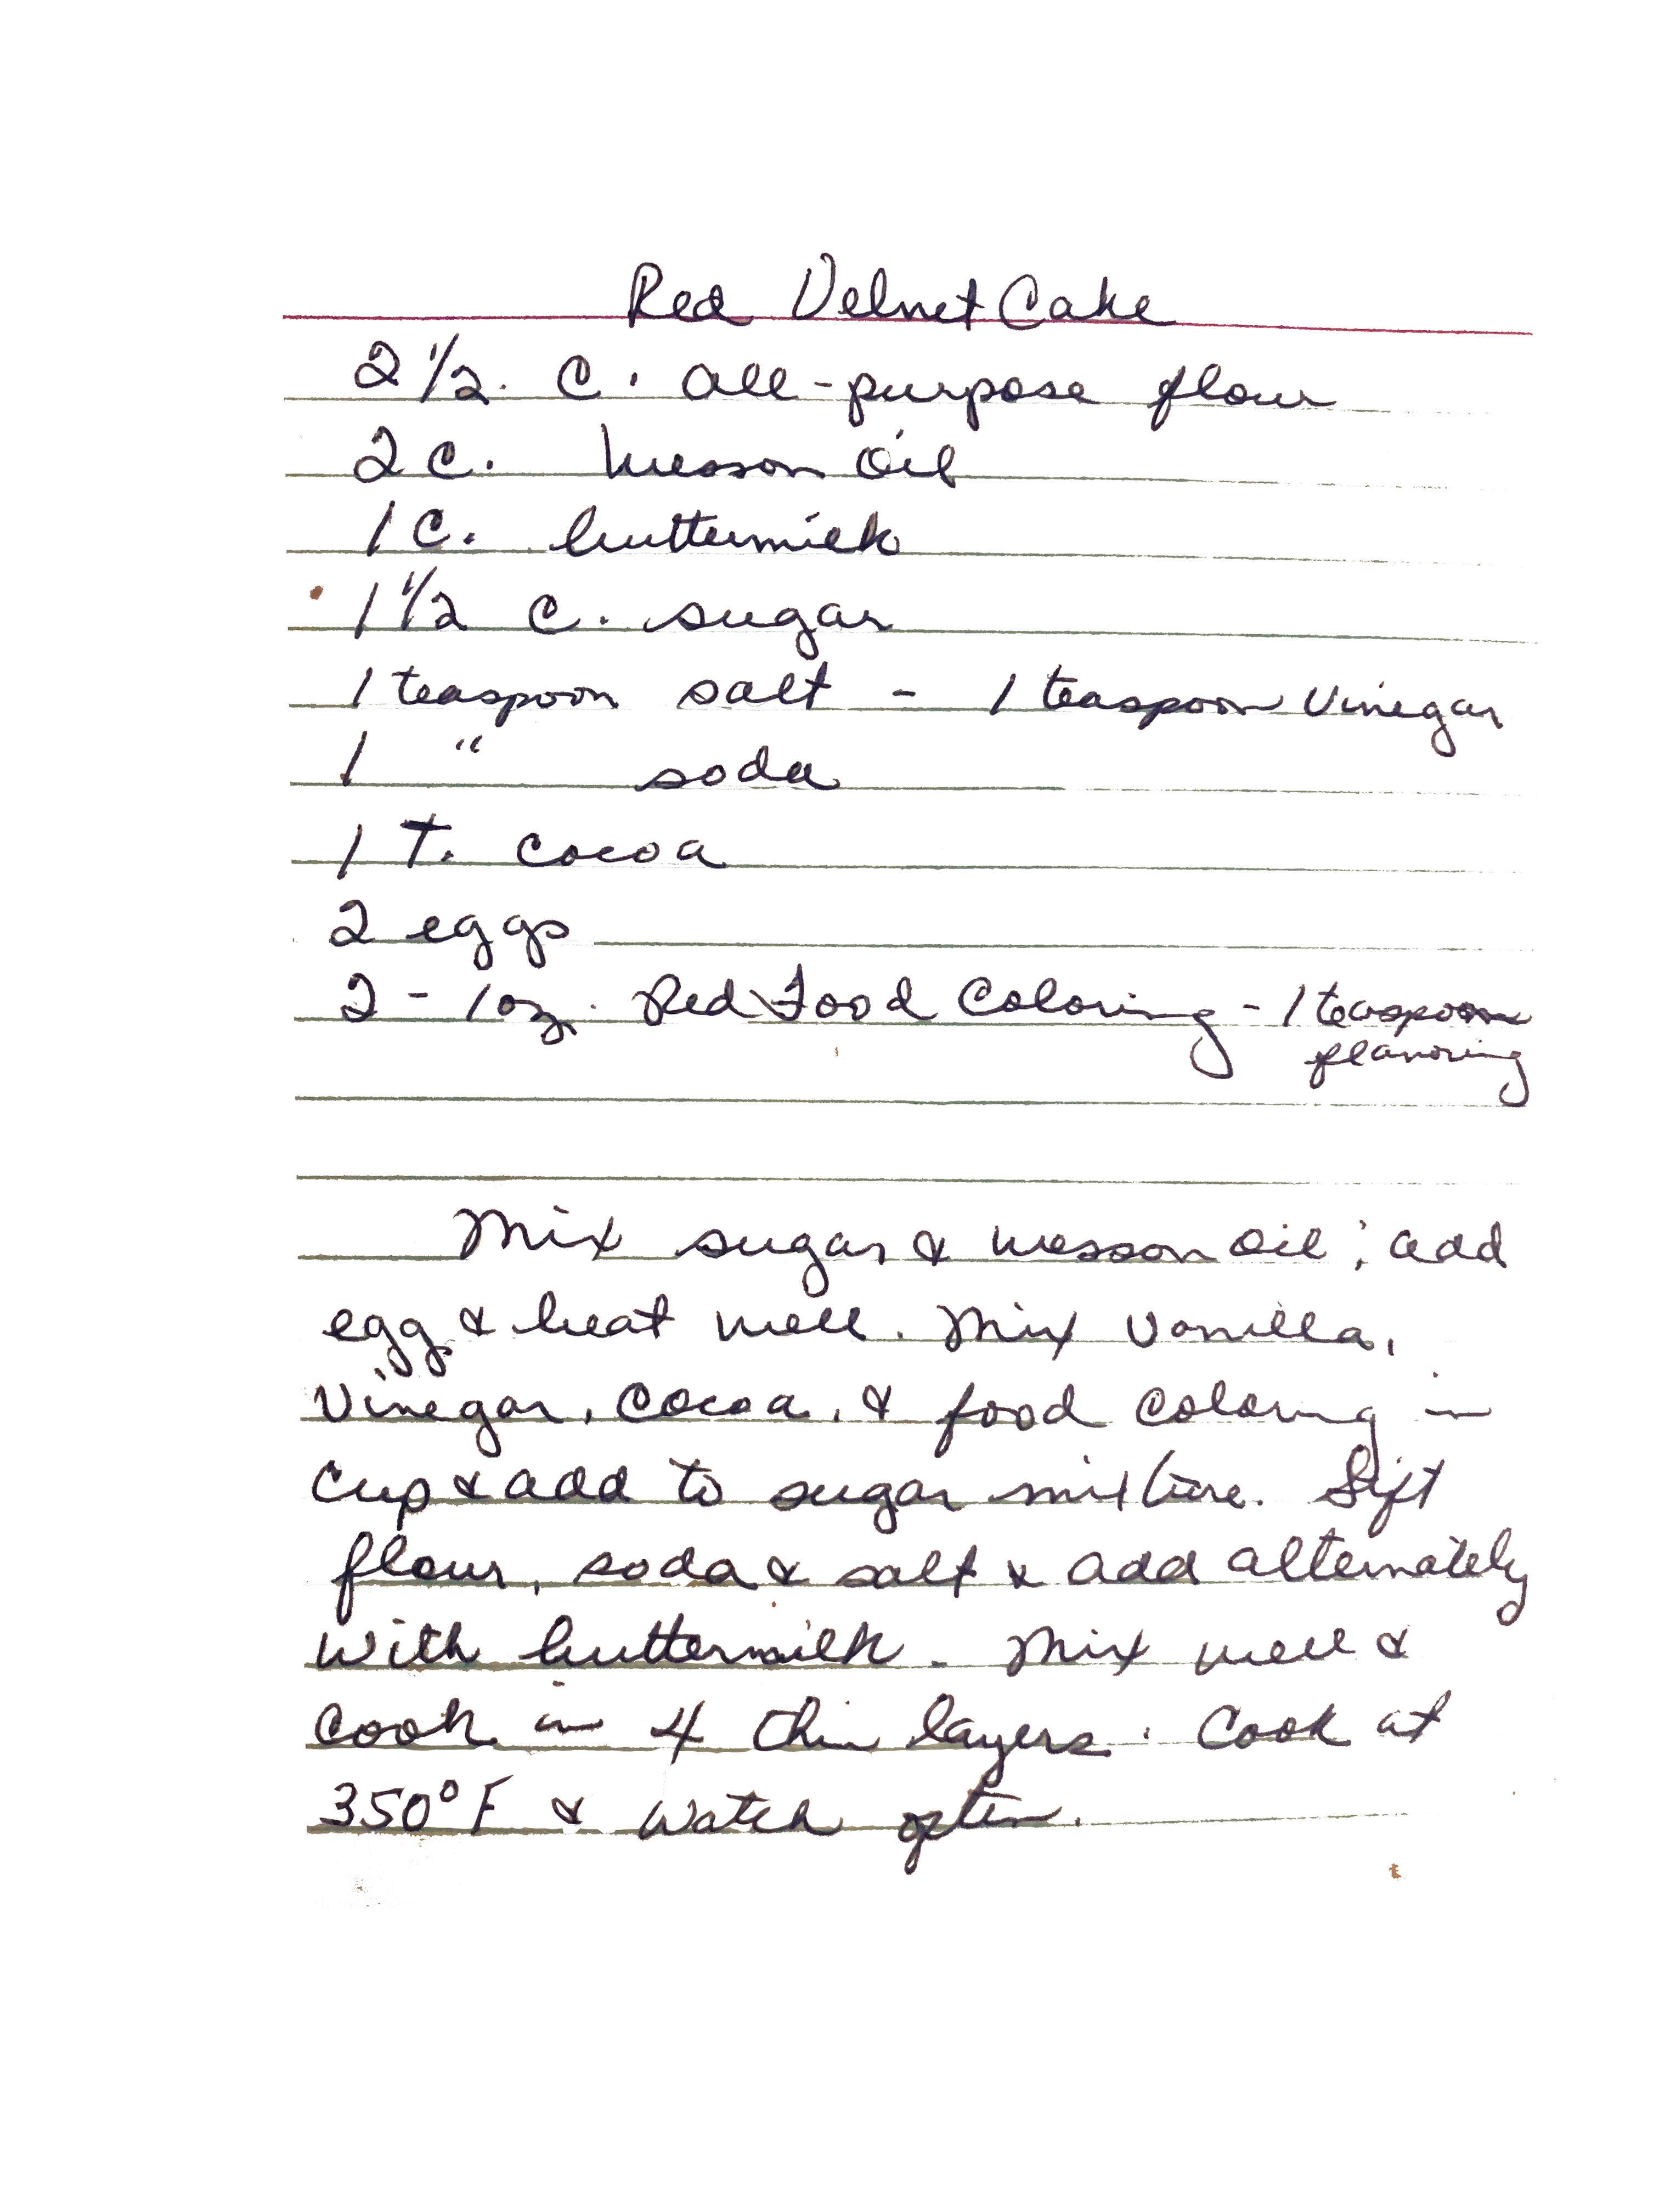 Red Velvet Cake
2 1/2 c. all-purpose flour
2 c. Wesson Oil
1 c. buttermilk
1 1/2 c. sugar
1 teaspoon salt - 1 teaspoon Vinegar
1 " soda
1 T. cocoa
2 eggs
2 - 1 oz. Red Food Coloring - 1 teaspoon
flavoring
Mix sugar & wesson oil; add
egg & beat well. Mix vanilla,
vinegar, cocoa, & food coloring in
cup & add to sugar mixture. Sift
flour, soda & salt & add alternately
with buttermilk. Mix well &
cook in 4 thin layers. Cook at
350° F & watch often.